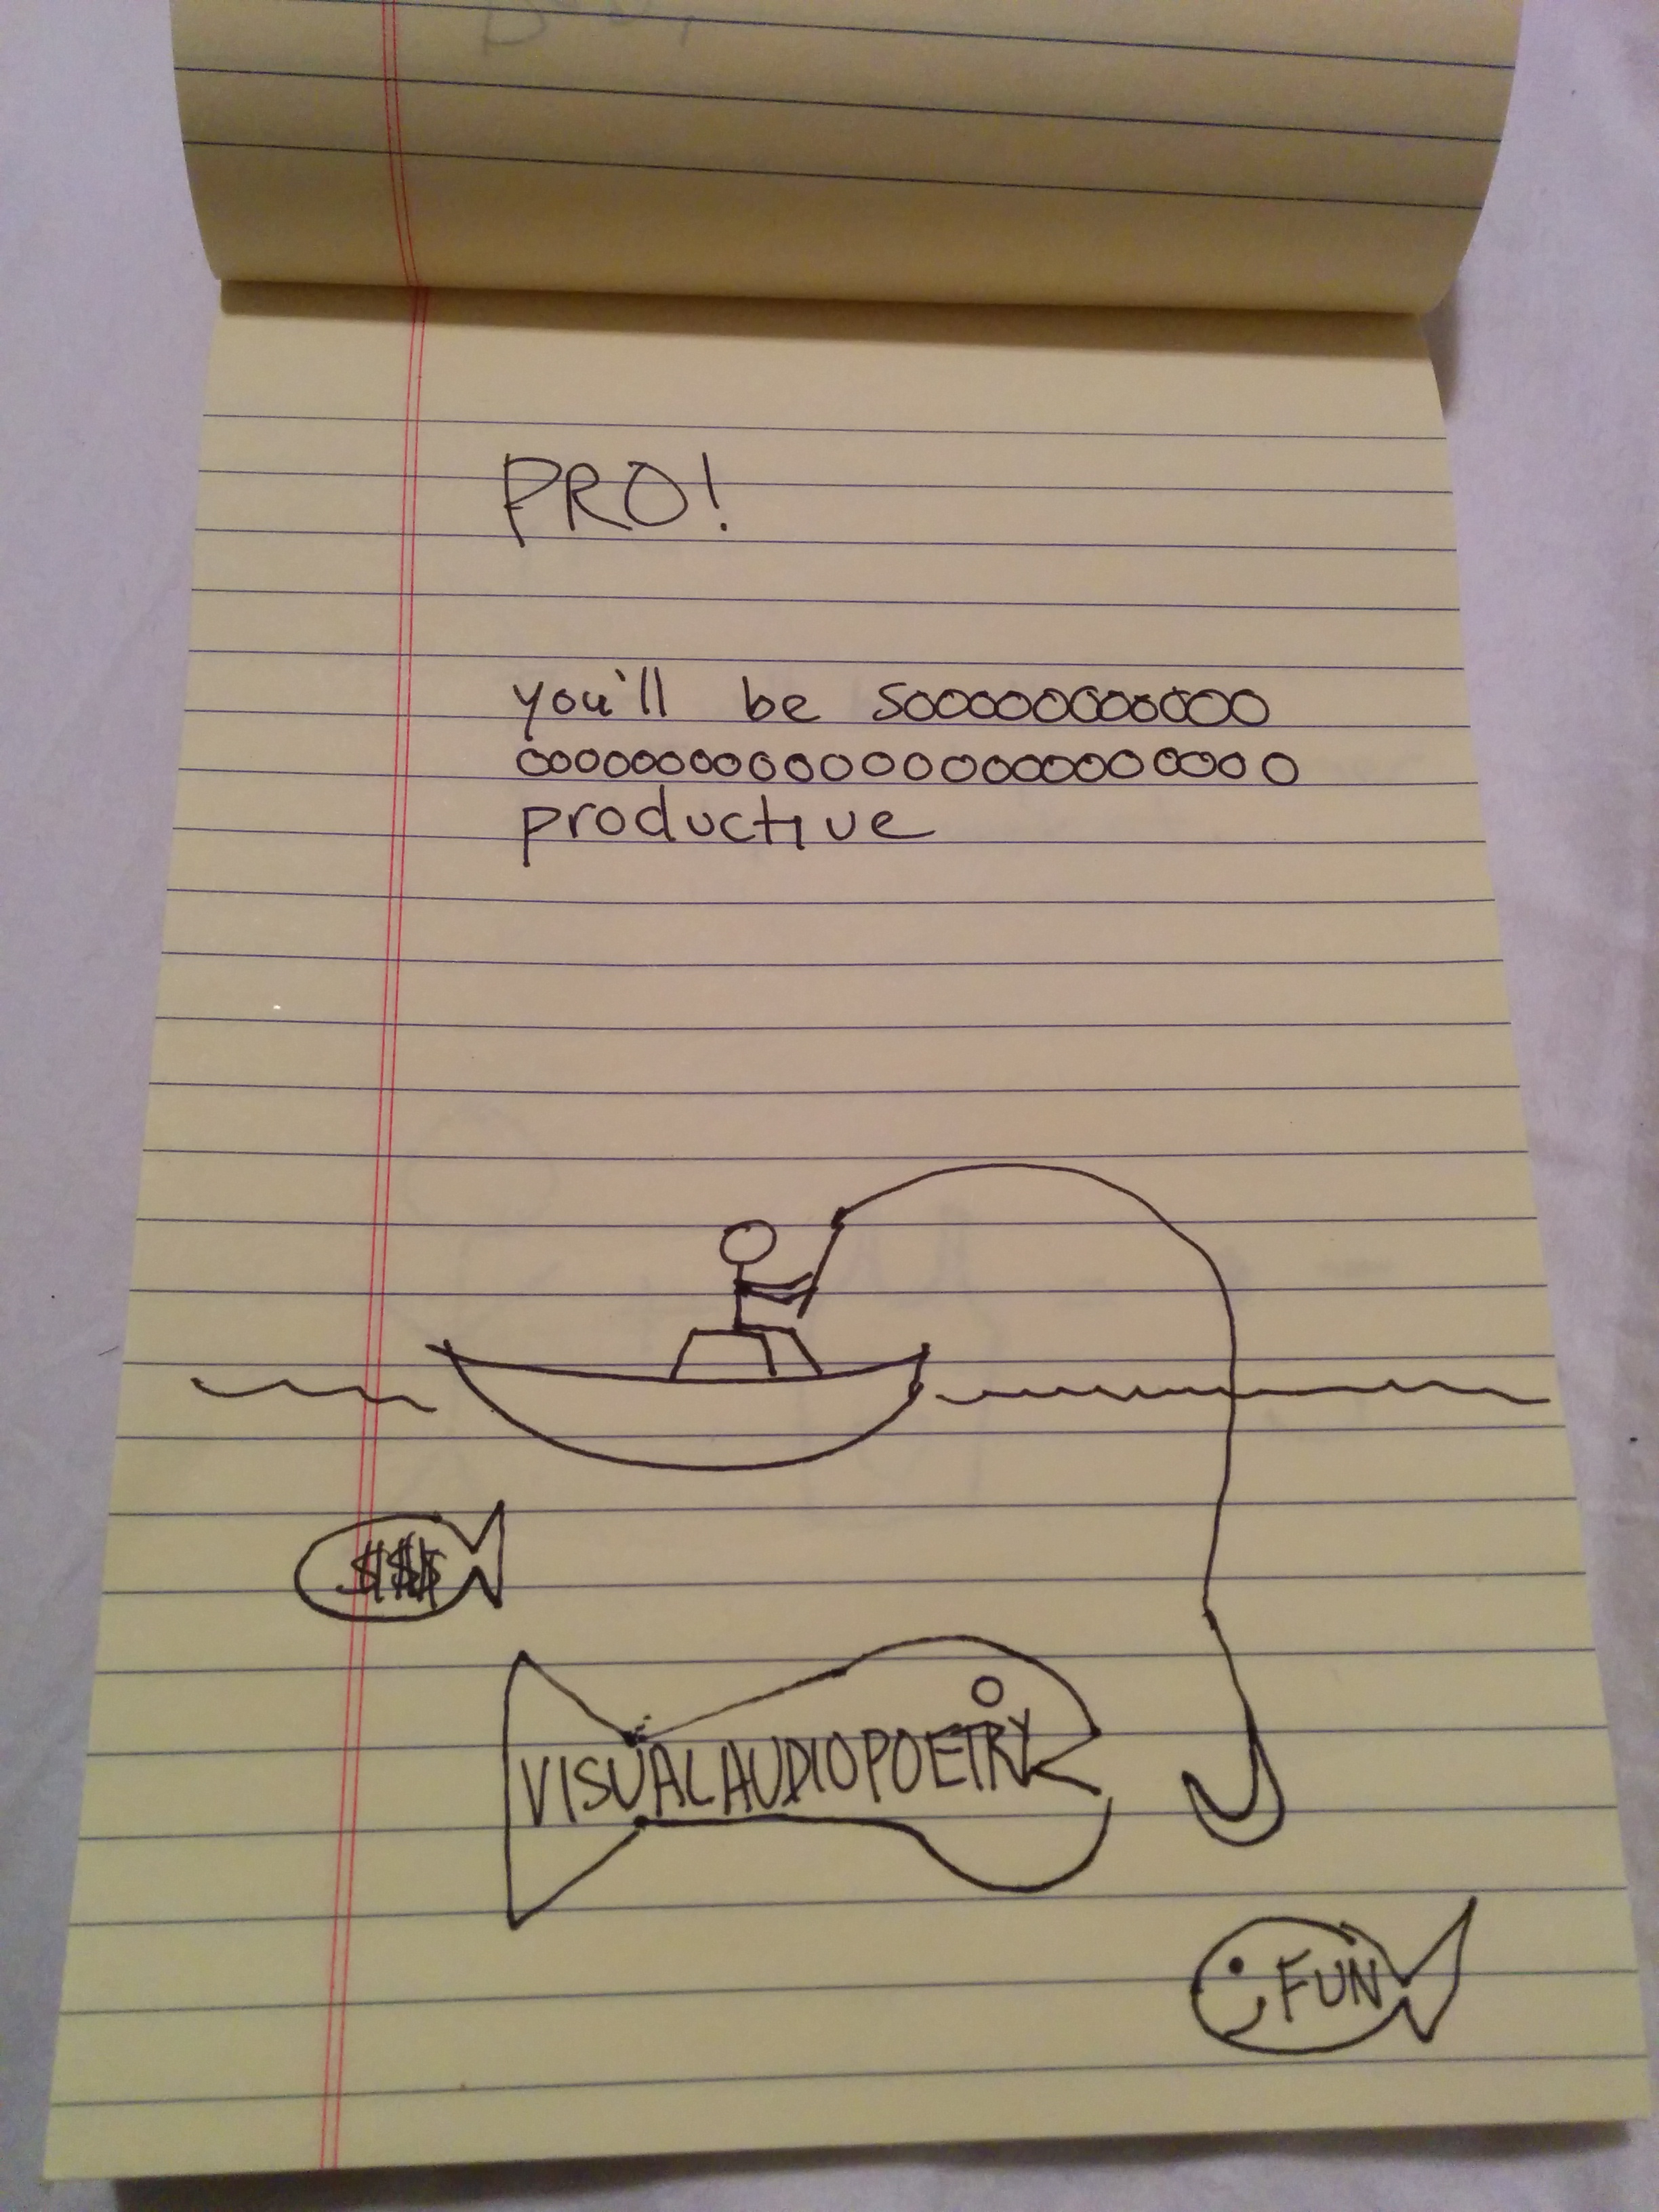 PRO!
you'll be sooooooooooooo
ooooooooooooooooooooooooo
productive
$$$
VISUALAUDIOPOETRY
FUN